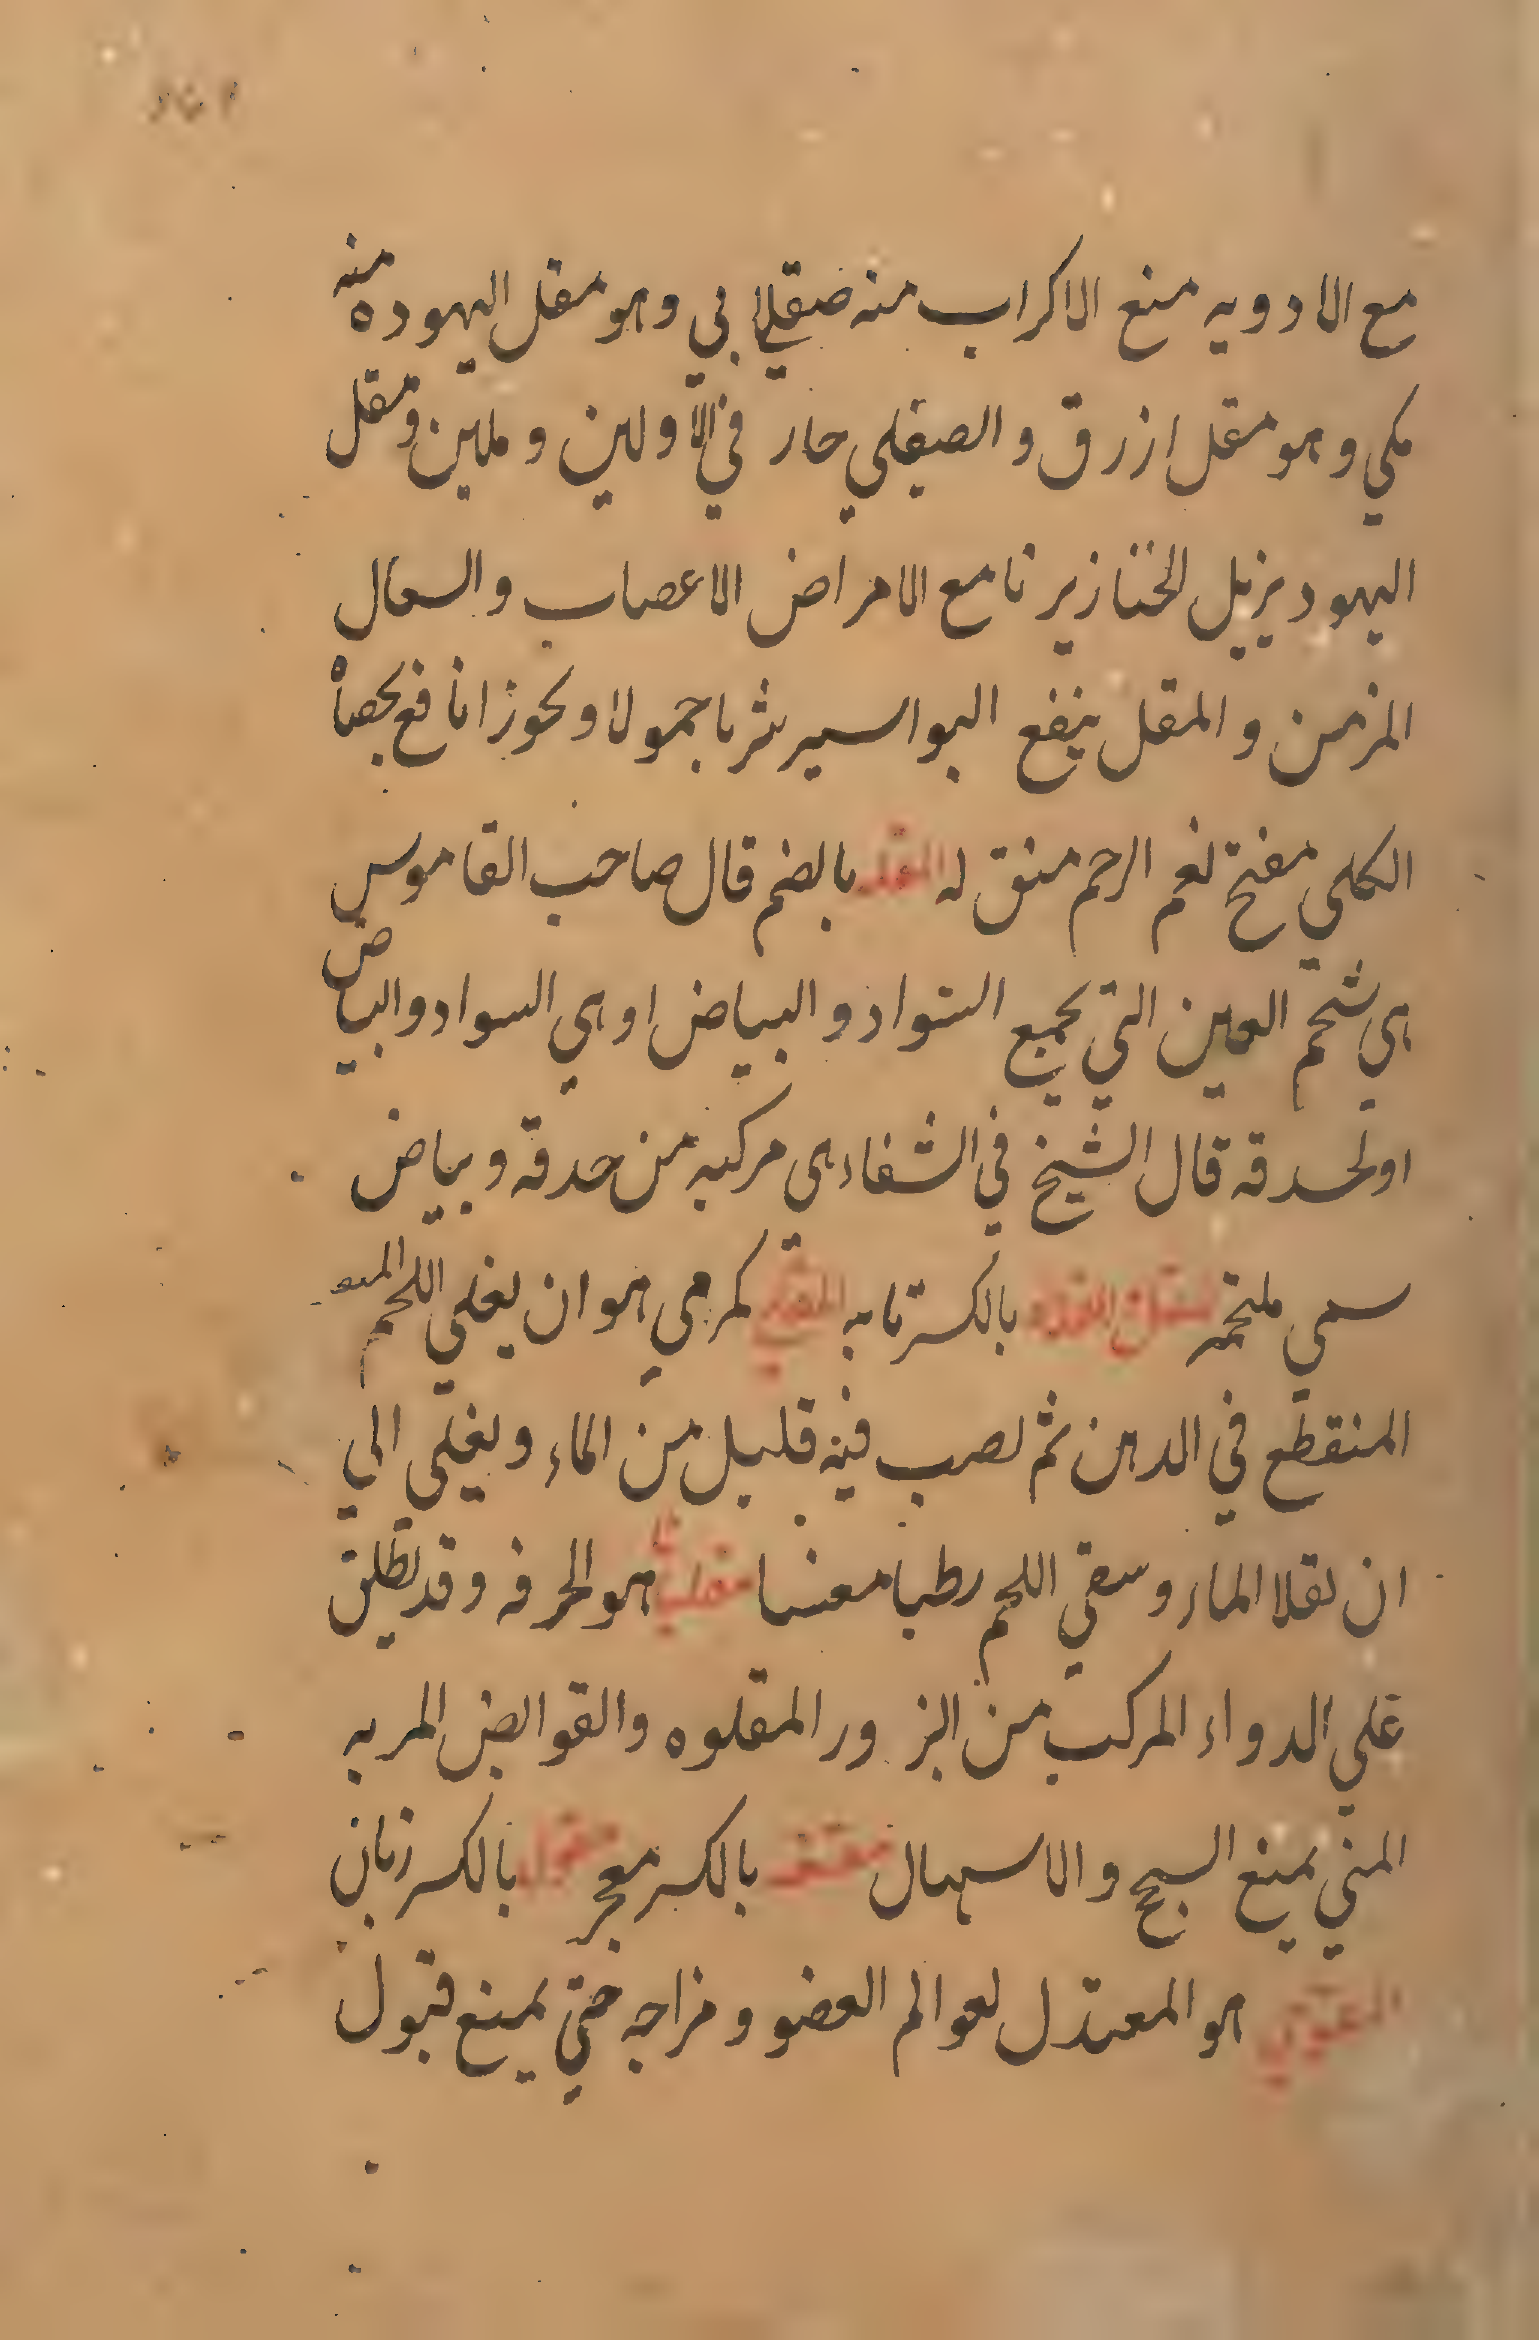 مع الادويه منع الاكراب منه صقلابي وهو مقل اليهود ه منه
مكي وهو مقل ازرق و الصقلبي حار في الاولين و ملين و مقل
اليهود يزيل الخنازير نامع الامراض الاعصاب والسعال
المزمن و المقل ينفع البواسير شربا حمولا و بخورا نافع لحصاه
الكلي مفتح لفم الرحم منق له المقله بالضم قال صاحب القاموس
هي شحم العين التي يجمع السواد و البياض او هي السواد والبياض
او الحدقه قال الشيخ في الشفاء هي مركبه من حدقه و بياض
سمي ملتحمه بالكسر تابه المقلي كمرمي هو ان يغلي اللحم
المنقطع في الدهن ثم يصب فيه قليل من الماء و يغلي الي
ان يقلا الماء و سقي اللحم رطبا مقلياثا هو الحرف و قد يطلق
علي الدواء المركب من البزور المقلوه والقوابض المربه
التي يمنع السحج والاسهال مقنعه بالكسر معجر مقول بالكسر زبان
المقوي هو المعتدل لعوالم العضو و مزاجه حتي يمنع قبول